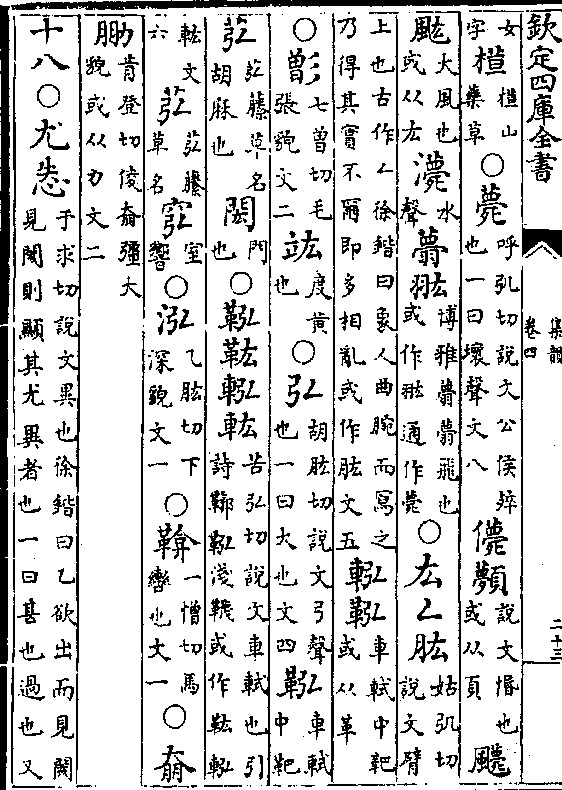 欽定四庫全書
集韻
卷四
二十三
女字 山藥草 ○薨 呼弘切說文公侯殌也一曰壞聲文八 儚顭 說文惽也或从頁 䬝
䫺 大風也或从厷 水聲 博雅飛也或作通作薨 ○厷𠃋肱 姑弘切說文臂
上也古作𠃋徐鍇曰象人曲腕而寫之乃得其實不爾即多相亂或作肱文五 䡏鞃 車軾中靶或从革
○ 七曾切毛張貌文二 竑 度黃也 ○弘 胡肱切說文弓聲也一曰大也文四 鞃 車軾中靶
苰 苰藤草名胡麻也 閎 門也 ○鞃䡏 苦弘切說文車軾也引詩鞹鞃淺幭或作
文六 苰 苰藤草名 室響 ○泓 乙肱切下深貌文一 ○ 一憎切馬轡也文一 ○
肯登切㑥彊大貌或从力文二
十八○尤 于求切說文異也徐鍇曰乙欲出而見閡見閡則顯其尤異者也一曰甚也過也又